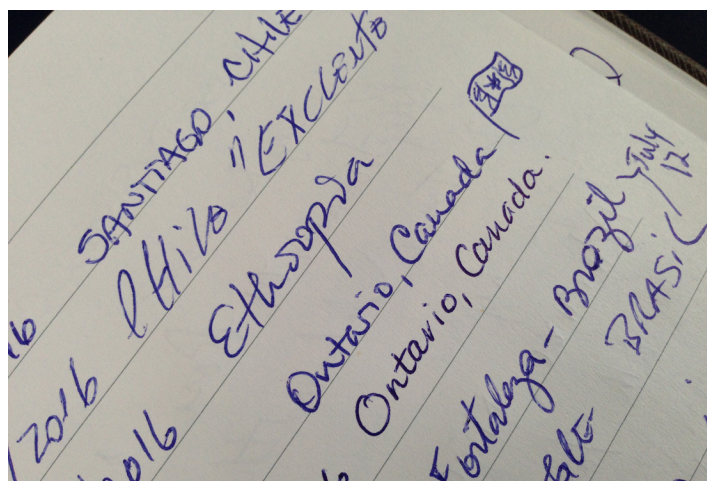 SANTIAGO, CHILE
16 CHILE "EXCELENTE
/2016 Ethiopia
2016 Ontario, Canada
Ontario, Canada.
Fortaleza - Brazil July 12
BRASIL